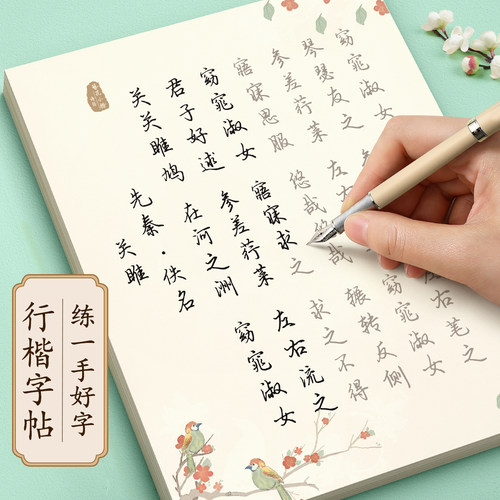 关雎
先秦·佚名
关关雎鸠
在河之洲
窈窕淑女
君子好逑
参差荇菜
左右流之
窈窕淑女
寤寐求之
求之不得
寤寐思服
悠哉悠哉
辗转反侧
参差荇菜
左右
窈窕淑女
琴瑟友之
窈窕淑女
练一手好字
行楷字帖